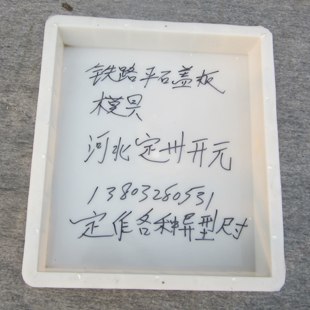 铁路平石盖板
模具
河北定州开元
13803280531
定作各种异型尺寸